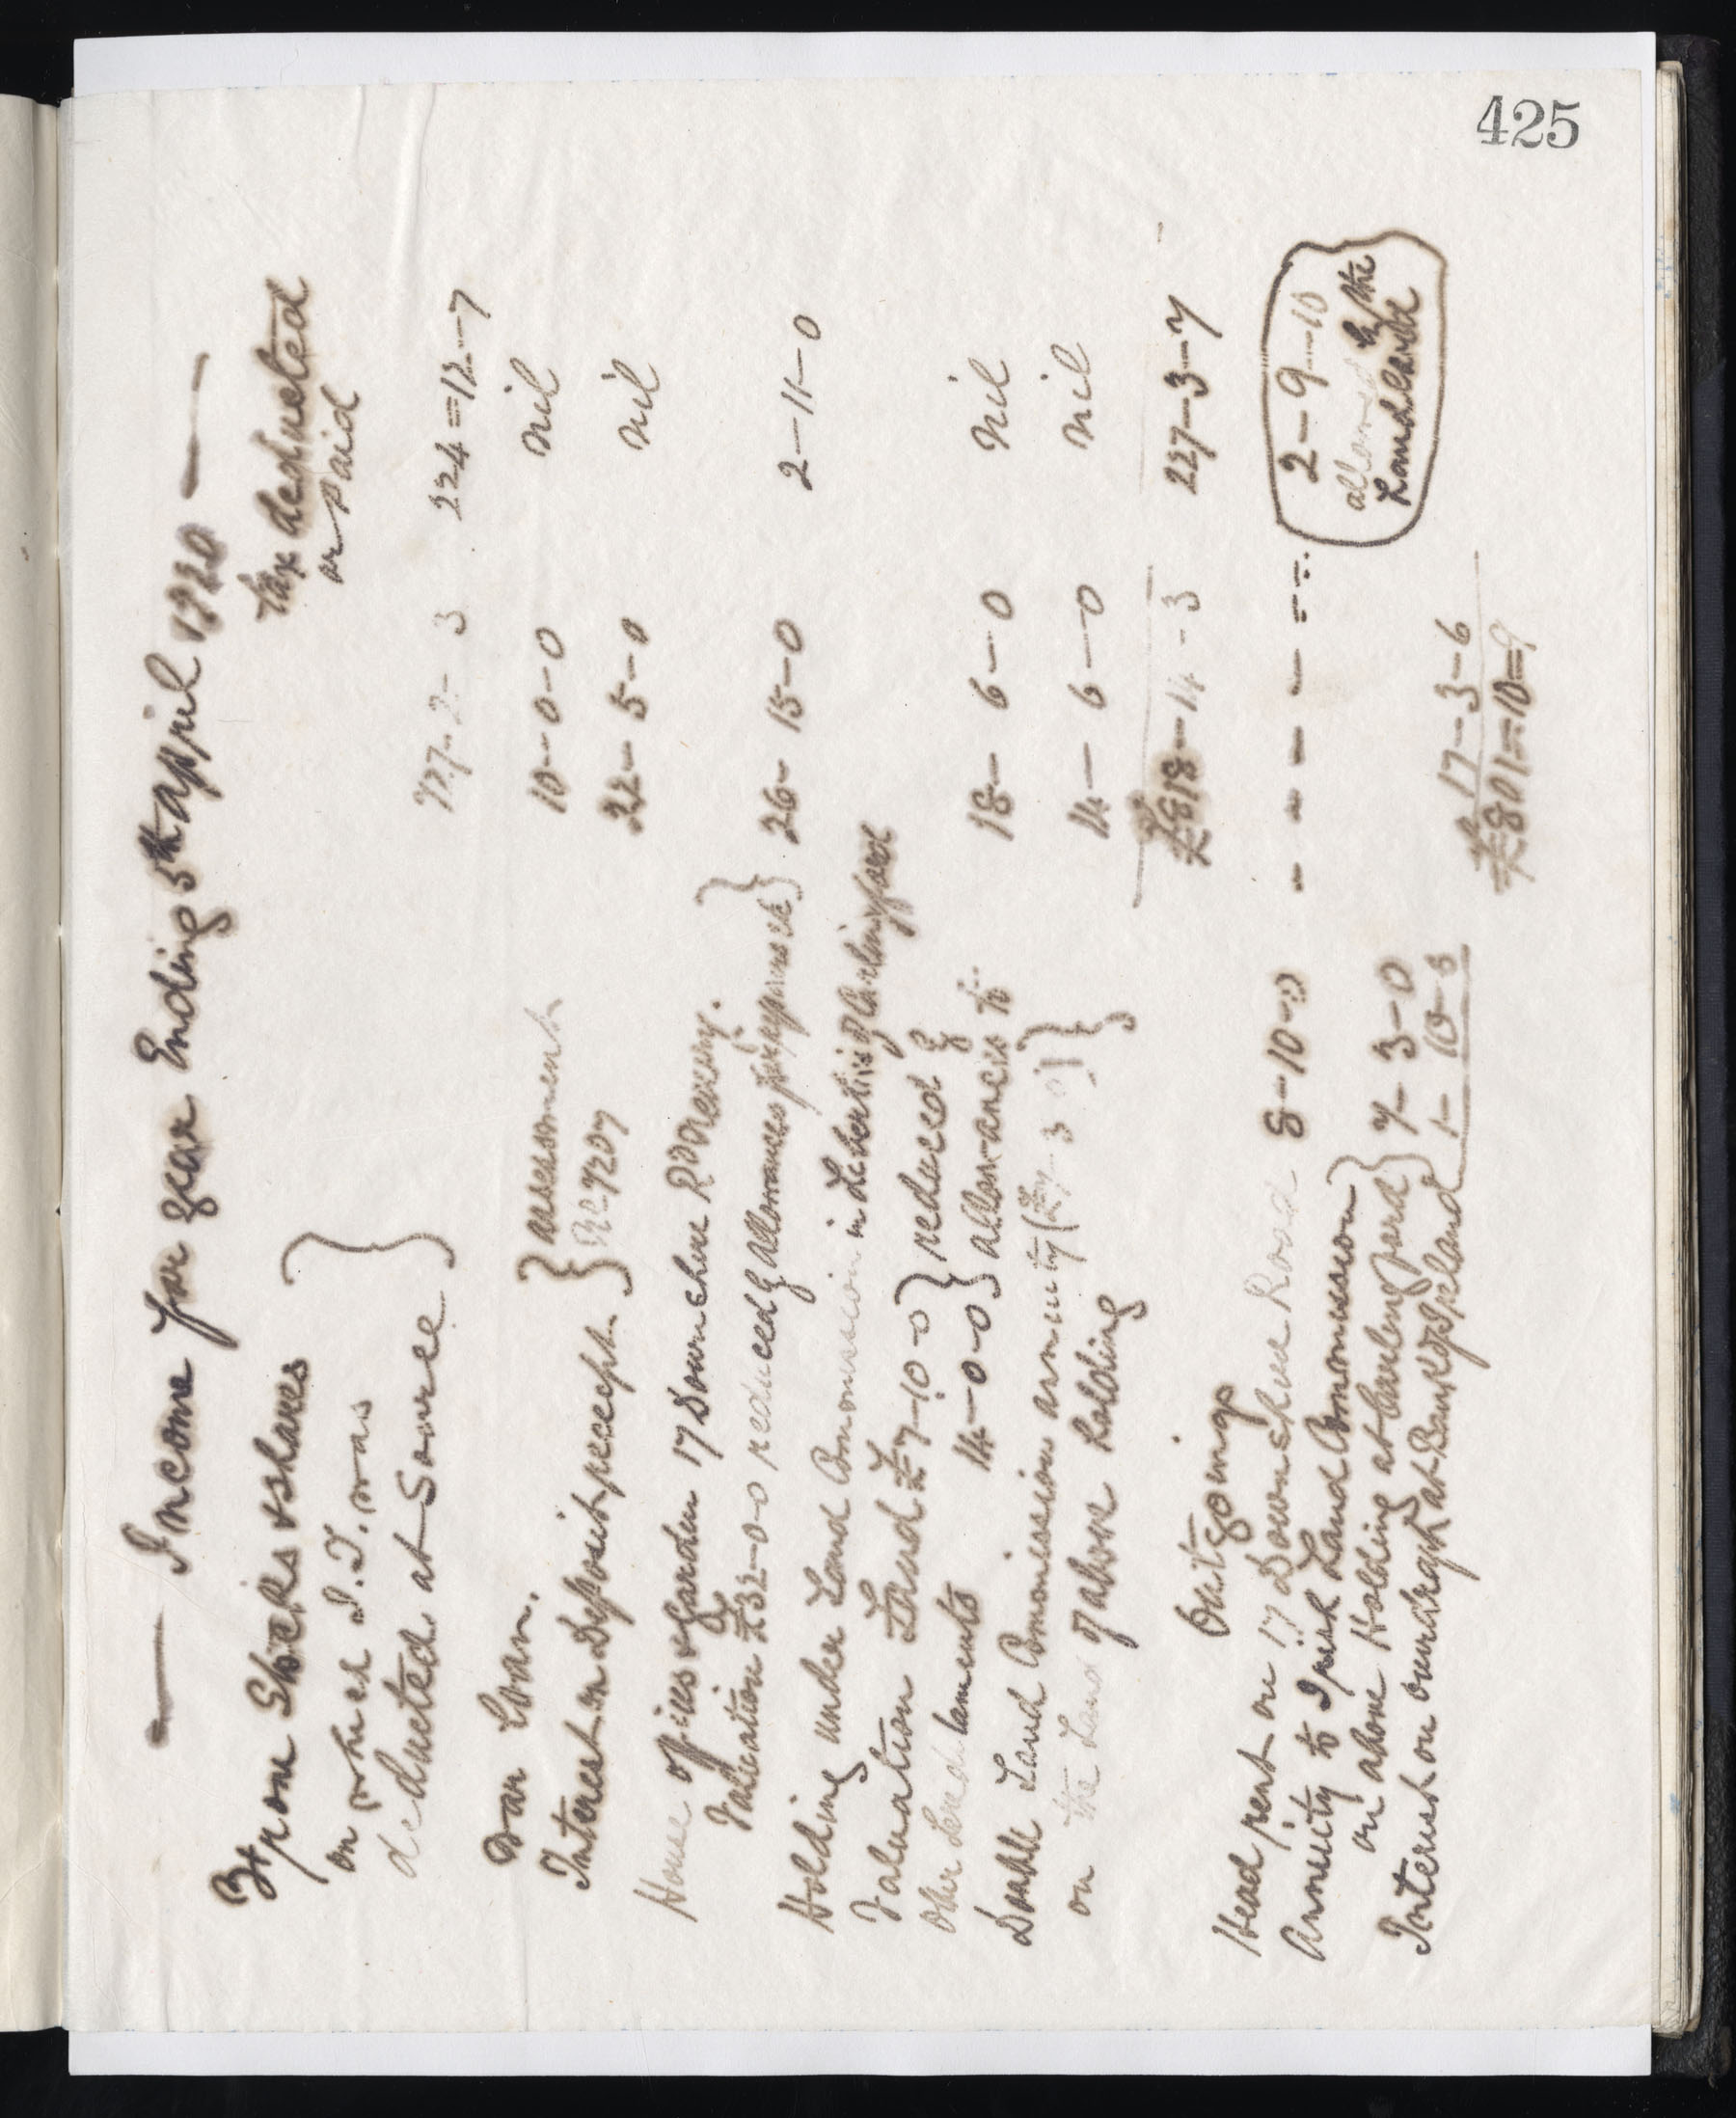 425
— Income for year Ending 5th April 1920 —
tax deducted
or paid
From Stocks & shares
on which I.T. was
deducted at Source } 727-2-3 224=12-7
War Loan. } assessment 10-0-0 nil
Interest on Deposit receipt. } No 7207 22-5-0 nil
House offices & garden 17 Downshire Rd Newry. }
Valuation £32-0-0 reduced by allowances for expenses etc } 26-15-0 2-11-0
Holding under Land Commission in Liberties of Carlingford
Valuation Land £7-10-0 } reduced by
Other hereditaments 14-0-0 } allowances to 18-6-0 nil
Double Land Commission annuity (£7-3-0) }
on the Land of above holding } 14-6-0 nil
£818-14-3 227-3-7
Outgoings
Head rent on 17 Downshire Road 8-10-0 - - - - - - 2-9-10
Annuity to Irish Land Commission } allowed by the
on above Holding at Carlingford } 7-3-0 Landlords
Interest on overdraft at Bank of Ireland 1-10-6 17-3-6
£801=10=9